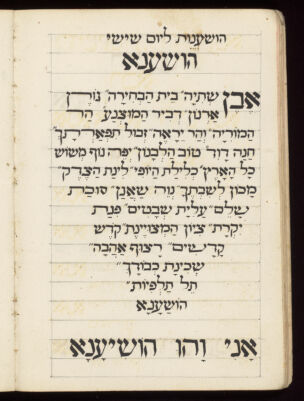 הושענות ליום שישי
הושענא
אבן שתיה״ בית הבחירה״ גורן
ארנון״ דביר המוצנע״ הר
המוריה״ והר יראה״ זבול תפארתך״
חנה דוד״ טוב הלבנון״ יפה נוף משוש
כל הארץ״ כלילת היופי״ לינת הצדק״
מכון לשבתך״ נוה שאנן״ סוכת
שלם״ עלית שבטים״ פנת
יקרת״ ציון המצויינת״ קדש
קדשים״ רצוף אהבה״
שכינת כבודך״
תל תלפיות״
הושענא
אני והו הושיענא